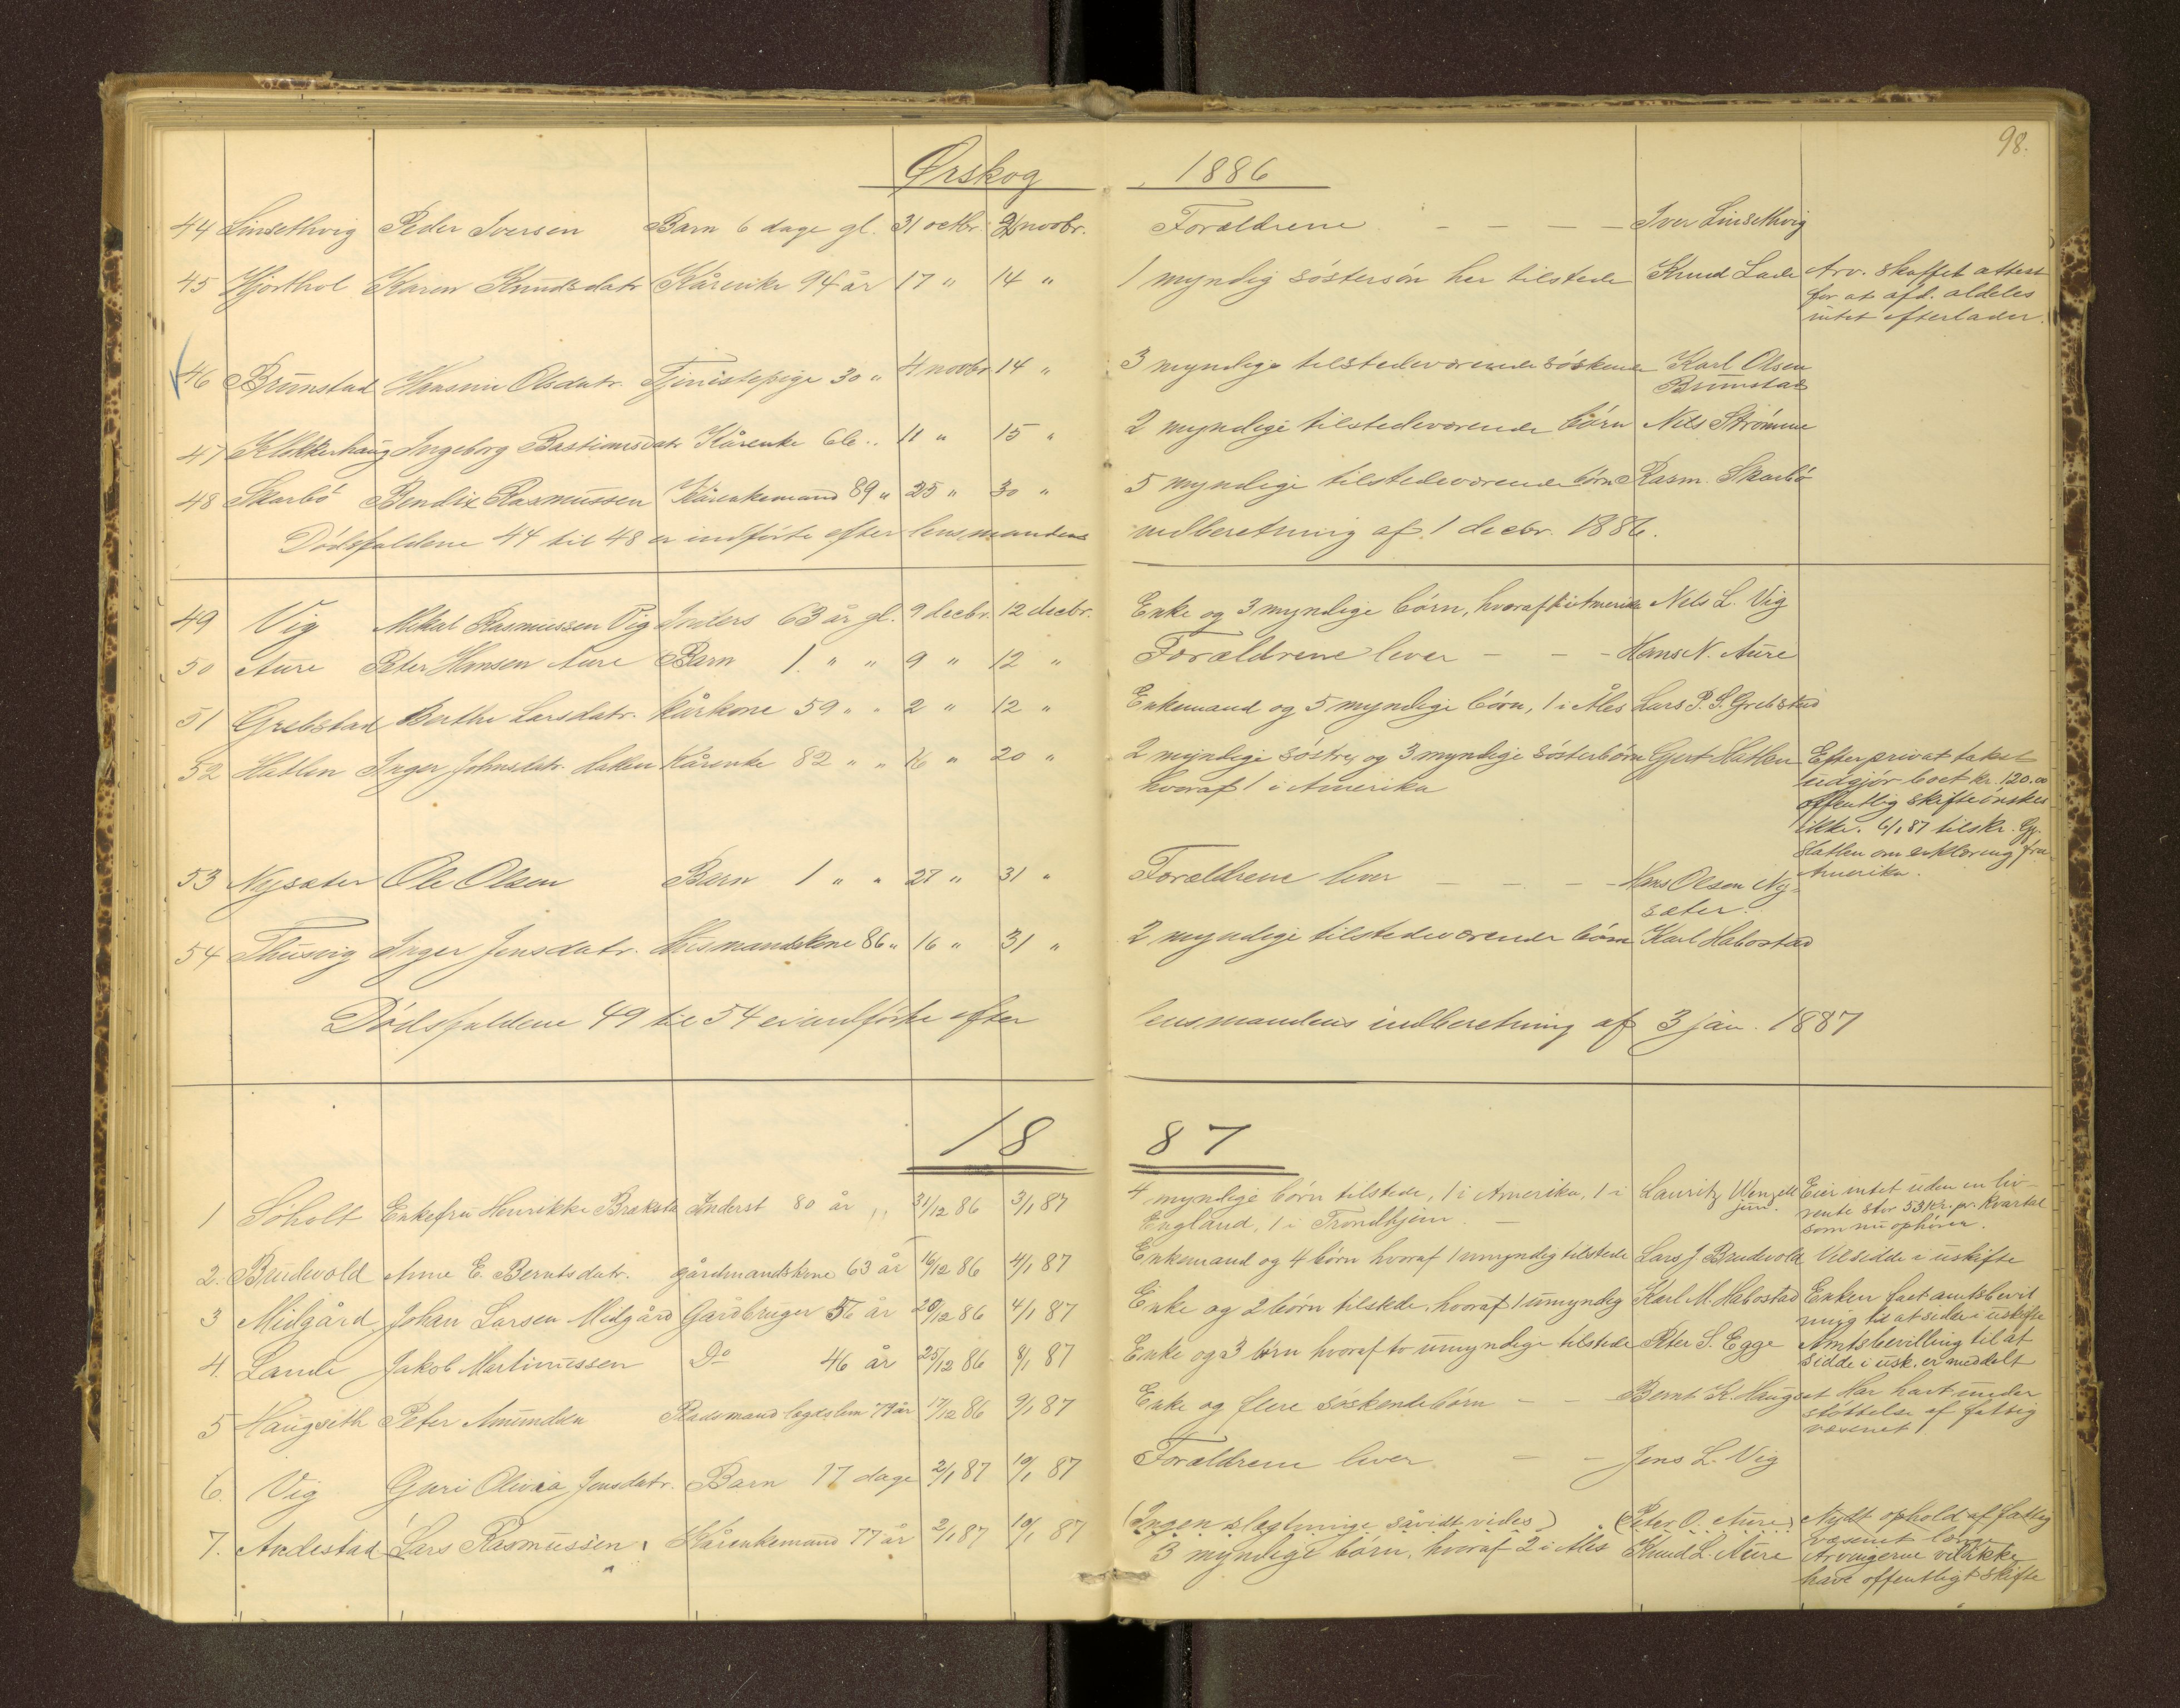 98.
Ørskog 1886
44 Linsethvig Peder Iversen Barn 6 dage gl. 31 octbr. 2 novbr. Forældrene — — — — Iver Linsethvig
45 Hjorthol Karen Knudsdatr Kårenke 94 år 17 " 14 " 1 myndig söstersön her tilstede Knud Lade Arv. skaffet attest
for at afd. aldeles
intet efterlader.
46 Brunstad Hansine Olsdatr. Tjenistepige 30 " 4 novbr 14 " 3 myndige tilstedeværende söskende Karl Olsen
Brunstad
47 Klokkerhaug Ingeborg Bastiansdatr Kårenke 66 " 11 " 15 " 2 myndige tilstedeværende börn Nils Strömme
48 Skarbö Bendix Rasmussen Kårenkemand 89 " 25 " 30 " 5 myndige tilstedeværende börn Rasm. Skarbö
Dödsfaldene 44 til 48 er indförte efter lensmandens indberetning af 1 decbr. 1886.
49 Vig Mikal Rasmussen Vig Inders 63 år gl. 9 decbr. 12 decbr. Enke og 3 myndige börn, hvoraf 1 i Amerika Nils L. Vig
50 Aure Peter Hansen Aure Barn 1 " " 9 " 12 " Forældrene lever — — — Hans N. Aure
51 Grebstad Berthe Larsdatr. kårkone 59 " " 2 " 12 " Enkemand og 5 myndige börn, 1 i Åles Lars P. S. Grebstad
52 Hatlen Inger Johnsdatr. Hatlen Kårenke 82 " " 16 " 20 " 2 myndige söstre, og 3 myndige sösterbörn Gjert Hatlen Efter privat takst
hvoraf 1 i Amerika udgjör boet kr. 120.00
offentlig skifte önskes
ikke. 6/1 87 tilskr. Gj.
Hatlen om erklæring fra
Amerika.
53 Nysæter Ole Olsen Barn 1 " " 27 " 31 " Forældrene lever — — — Hans Olsen Ny-
sæter.
54 Thusvig Inger Jensdatr. Husmandskone 86 " 16 " 31 " 2 myndige tilstedeværende börn Karl Habostad
Dödsfaldene 49 til 54 er indförte efter lensmandens indberetning af 3 jan. 1887
1887
1 Söholt Enkefru Henrikke Braksta Inderst 80 år " 31/12 86 3/1 87 4 myndige börn tilstede, 1 i Amerika, 1 i Lauritz Wenzell Eier intet uden en liv-
England, 1 i Trondhjem. — jun. rente stor 53 Kr. pr. Kvartal
som nu ophörer.
2. Brudevold Anne E. Berntsdatr. gårdmandskone 63 år 16/12 86 4/1 87 Enkemand og 4 börn hvoraf 1 umyndig tilstede Lars J. Brudevold Vil sidde i uskifte
3 Midgård Johan Larsen Midgård Gårdbruger 56 år 20/12 86 4/1 87 Enke og 2 börn tilstede, hvoraf 1 umyndig Karl M. Habostad Enken faet amtsbevil
ning til at sidde i uskifte
4. Lande Jakob Martinussen Do 46 år 25/12 86 8/1 87 Enke og 3 börn hvoraf to umyndige tilstede Peter S. Egge Amtsbevilling til at
sidde i usk. er meddelt
5 Haugseth Peter Amunden Pladsmand lægdslem 79 år 17/12 86 9/1 87 Enke og flere söskendebörn — — Bernt K. Haugset Har havt under
stöttelse af fattig
væsenet
6. Vig Guri Olivia Jensdatr. Barn 17 dage 2/1 87 10/1 87 Forældrene lever — — Jens L. Vig
7. Andestad Lars Rasmussen Kårenkemand 77 år 2/1 87 10/1 87 (Ingen slægtninge såvidt vides) (Peter O. Aure) Nydt ophold af fattig
væsenet
3 myndige börn, hvoraf 2 i Åles Knud L. Aure Arvingerne vil ikke
have offentligt skifte